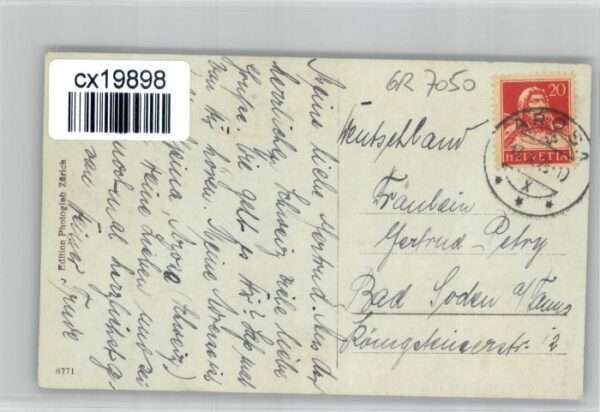 cx19898
GR 7050
20
HELVETIA
AROSA
Deutschland
Fräulein
Gertrud Petry
Bad Soden a/Taunus
Königsteinerstr. 12
Meine liebe Gertrud. Aus der
herrlichen Schweiz viele liebe
Grüße. Wie geht es Dir? Laß mal
von Dir hören. Meine Adresse
Arosa (Schweiz)
Deine Lieben und sei
noch mal herzlichst ge
von Deiner Trude
Edition Photoglob Zürich
8771